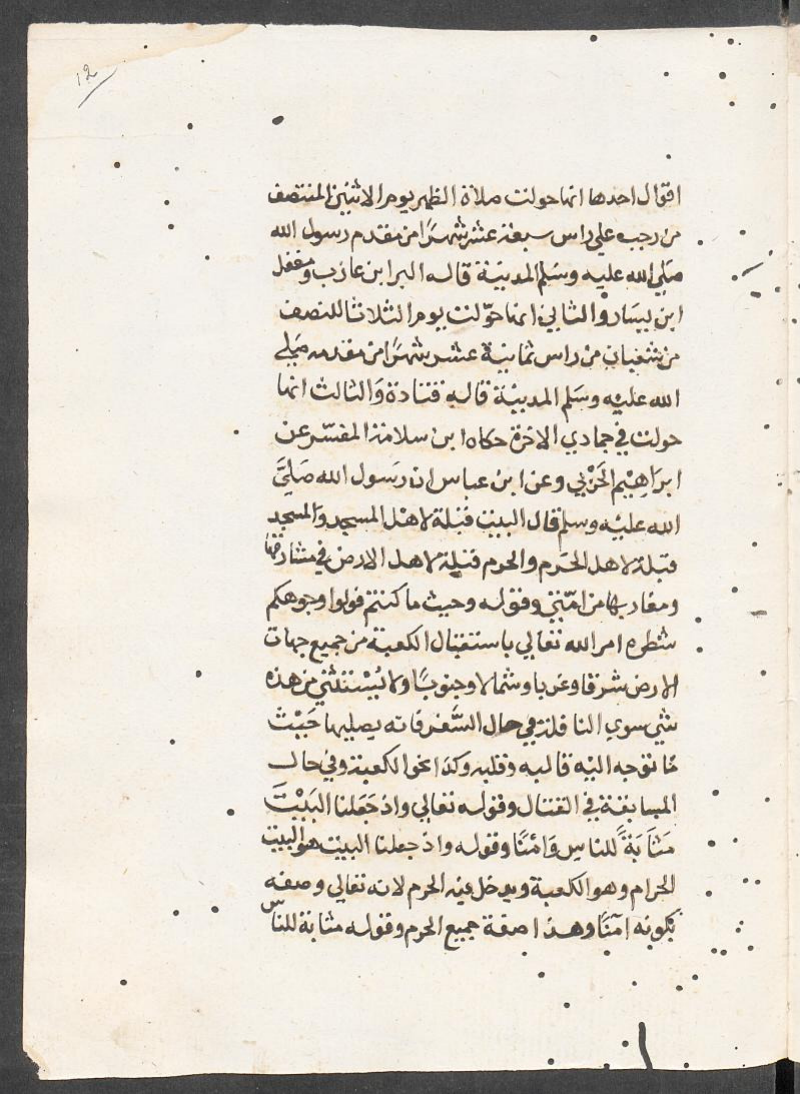 ١٢
اقوال احدها انها حولت صلاة الظهر يوم الاثنين المنتصف
من رجب علي راس سبعة عشر شهرًا من مقدم رسول الله
صلي الله عليه وسلم المدينة قاله البرا ابن عازب ومغفل
ابن يسار والثاني انها حوّلت يوم الثلاثا للنصف
من شعبان من راس ثمانية عشر شهرًا من مقدمه صلي
الله عليه وسلم المدينة قاله قتادة والثالث انها
حولت في جمادي الاخرة حكاه ابن سلامة المفسّر عن
ابراهيم الحَرْبي وعن ابن عباس ان رسول الله صَلَّيَ
الله عليه وسلم قال البيت قبلة لاهل المسجد والمسجد
قبلة لاهل الحَرم والحرم قبلة لاهل الارض في مشارقها
ومغاربها من امّتي وقوله وحيث ما كنتم فولوا وجوهكم
شطره امر الله تعالي باستقبال الكعبة من جميع جهات
الارض شرقا وغربا وشمالا وجنوبًا ولا يُسْتثني من هذه
شي سوي النافلة في حال السَّفر فانه يصليها حَيْثُ
مَا توجه اليْه قالبه وقلبه وكذا نحو الكعبة وفي حال
المسايفة في القتال وقوله تعالي واذ جَعَلنا البَيْتَ
مَثَابَةً للناسِ وَامْنًا وقوله واذ جعلنا البيت هو البيت
الحرام وهو الكعبة ويدخل فيه الحرم لانه تعالي وصفه
بكونه امَنًا وهذا صفة جميع الحرم وقوله مثابة للناس